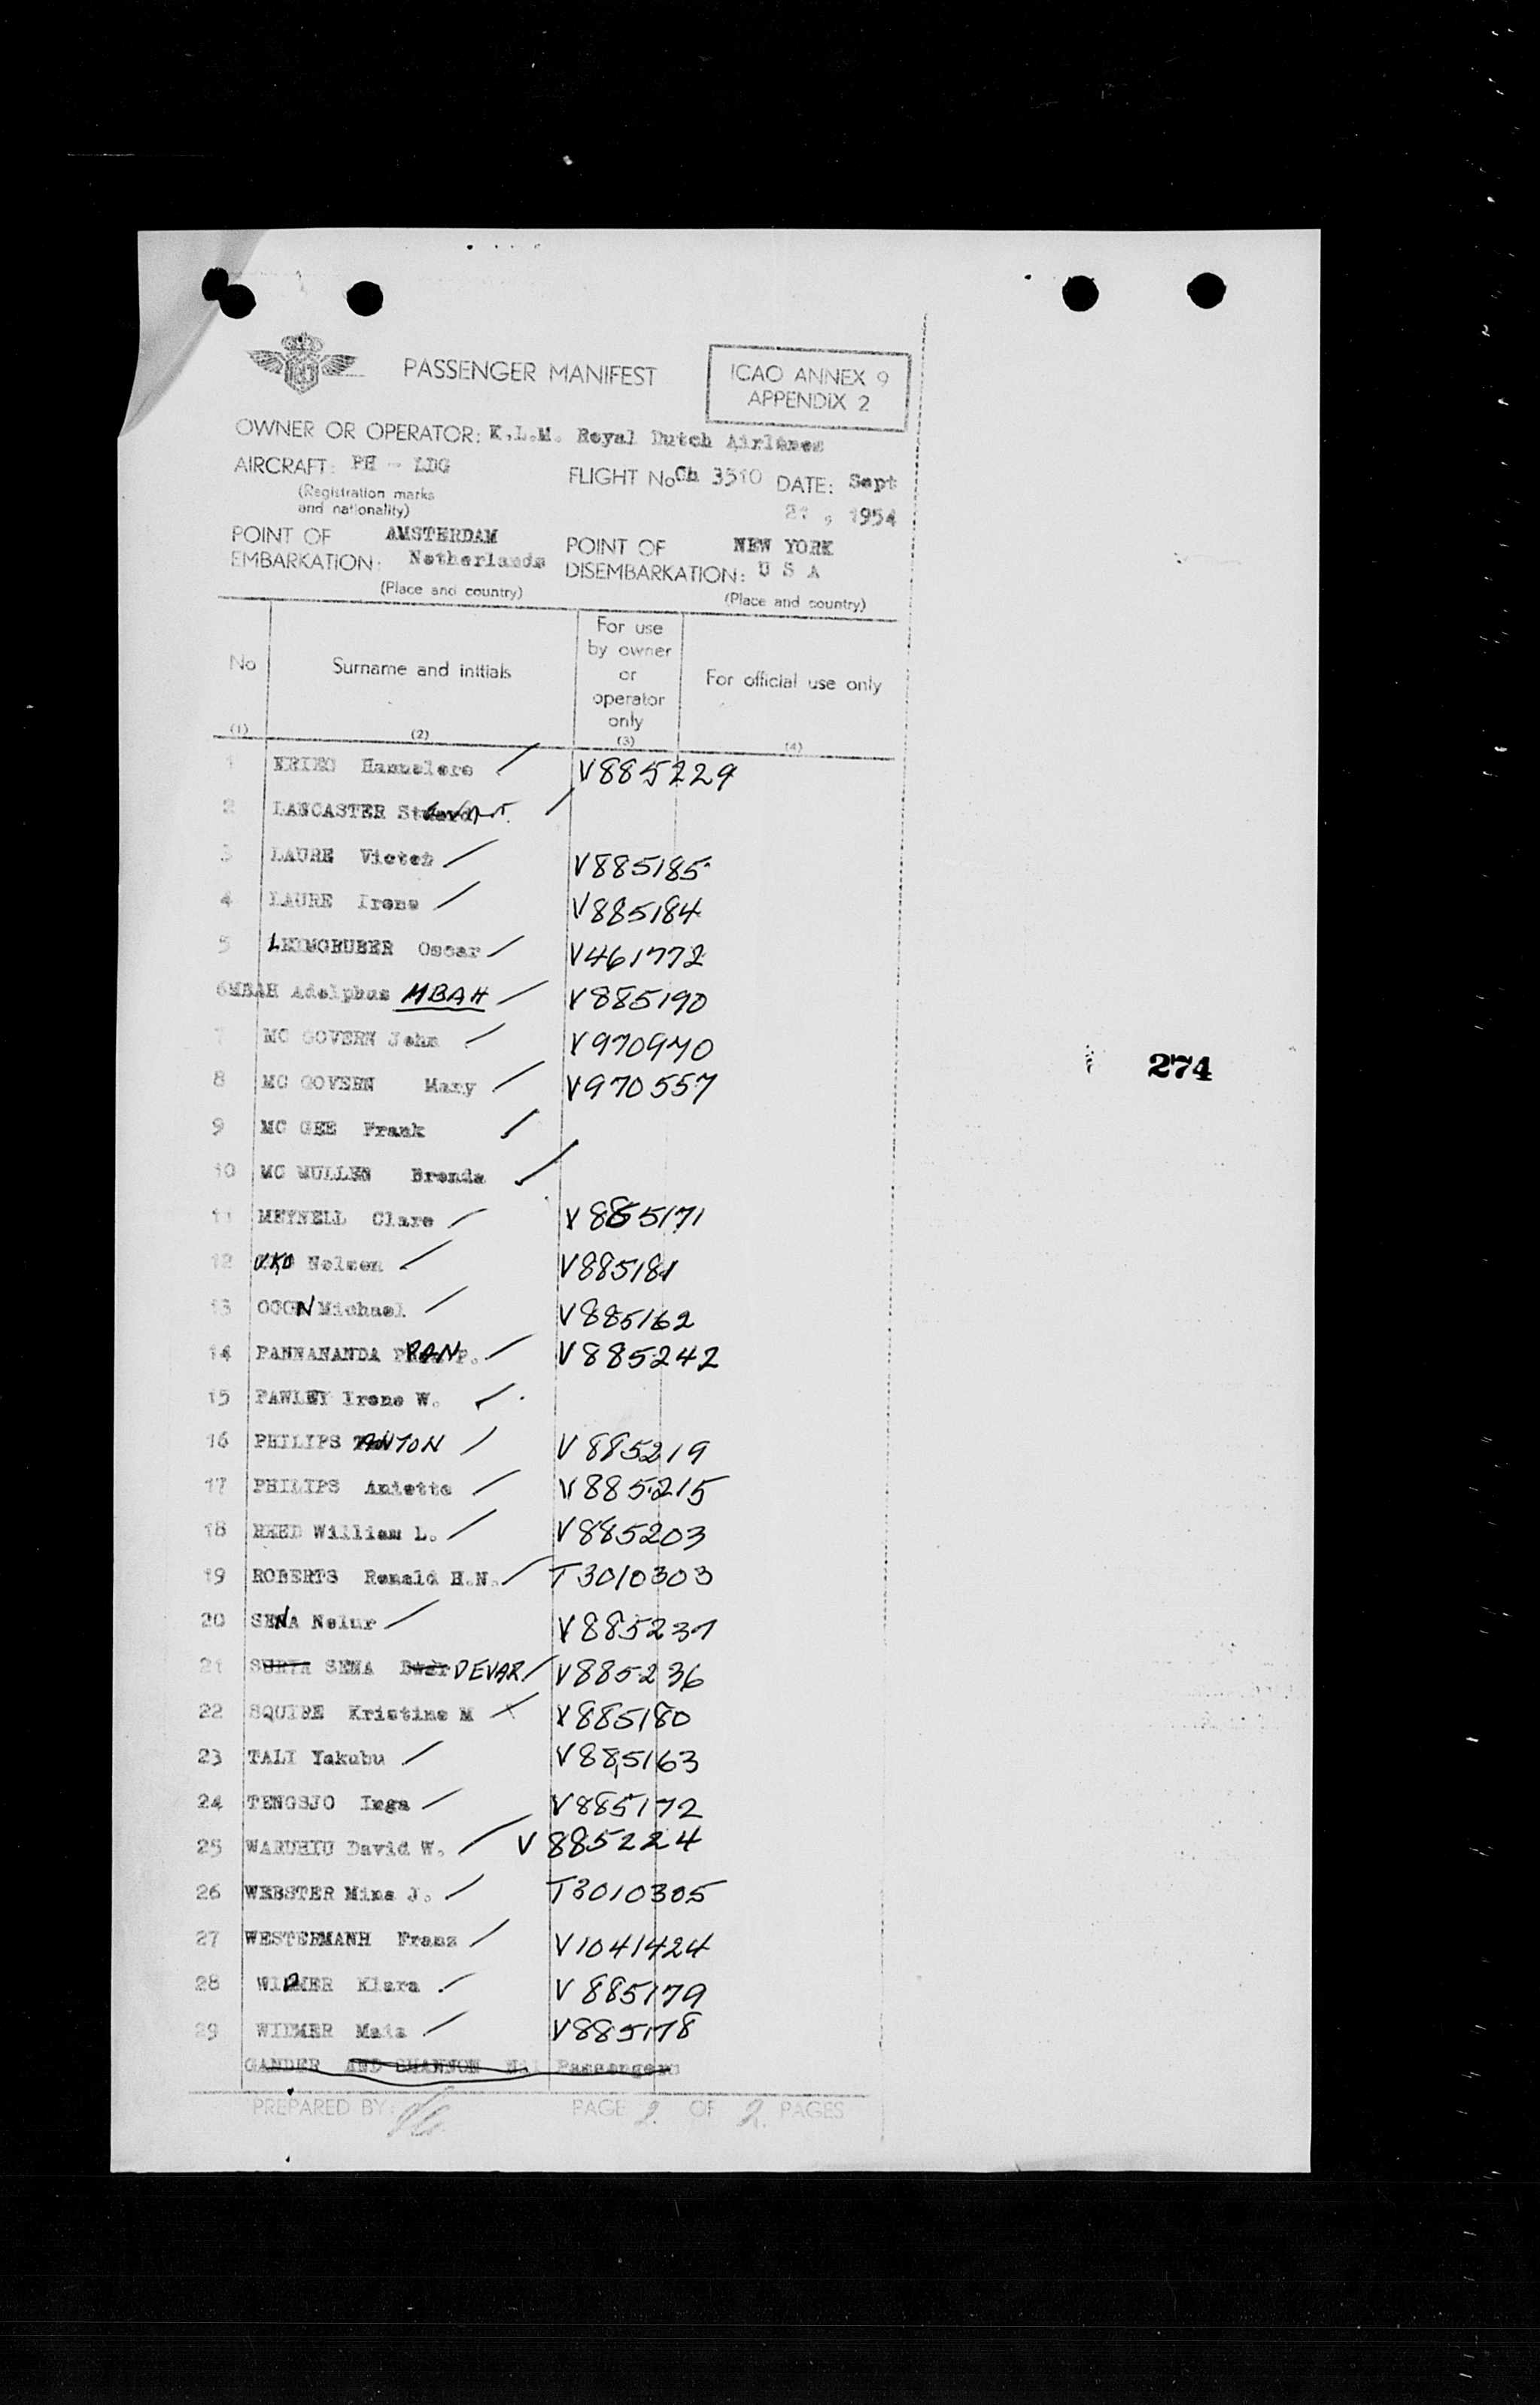 PASSENGER MANIFEST
ICAO ANNEX 9
APPENDIX 2
OWNER OR OPERATOR: K.L.M. Royal Dutch Airlines
AIRCRAFT: PH - LDG
FLIGHT No Ch 3510 DATE: Sept
(Registration marks
and nationality)
21, 1954
POINT OF AMSTERDAM
EMBARKATION: Netherlands
(Place and country)
POINT OF NEW YORK
DISEMBARKATION: U S A
(Place and country)
No
Surname and initials
For use
by owner
or
operator
only
For official use only
(1) (2) (3) (4)
1 Hannelore V885229
2 LANCASTER
3 LAURE V885185
4 LAURE Irene V885184
5 LEIMGRUBER Oscar V461772
6 MBAH Adolphus MBAH V885190
7 MC GOVERN John V970970
8 MC GOVERN Mary V970557
9 MC GEE Frank
10 MC MULLEN Brenda
11 MEYNELL Clare V885171
12 UKO Nelson V885181
13 OGON Michael V885162
14 PANNANANDA PRAN P. V885242
15 PAWLEY Irene W.
16 PHILIPS ANTON V885219
17 PHILIPS Anietta V885215
18 REED William L. V885203
19 ROBERTS Ronald H.N. T3010303
20 SENA Nelur V885237
21 SURYA SENA DEVAR V885236
22 SQUIRE Kristine M V885180
23 TALI Yakubu V885163
24 TENGSJO Inga V885172
25 WARUHIU David W. V885224
26 WEBSTER Mina J. T3010305
27 WESTERMANN Franz V1041424
28 WIDMER Klara V885179
29 WIDMER Maia V885178
GANDER AND SHANNON Nil Passengers
PREPARED BY:
PAGE 2. OF 2. PAGES
274